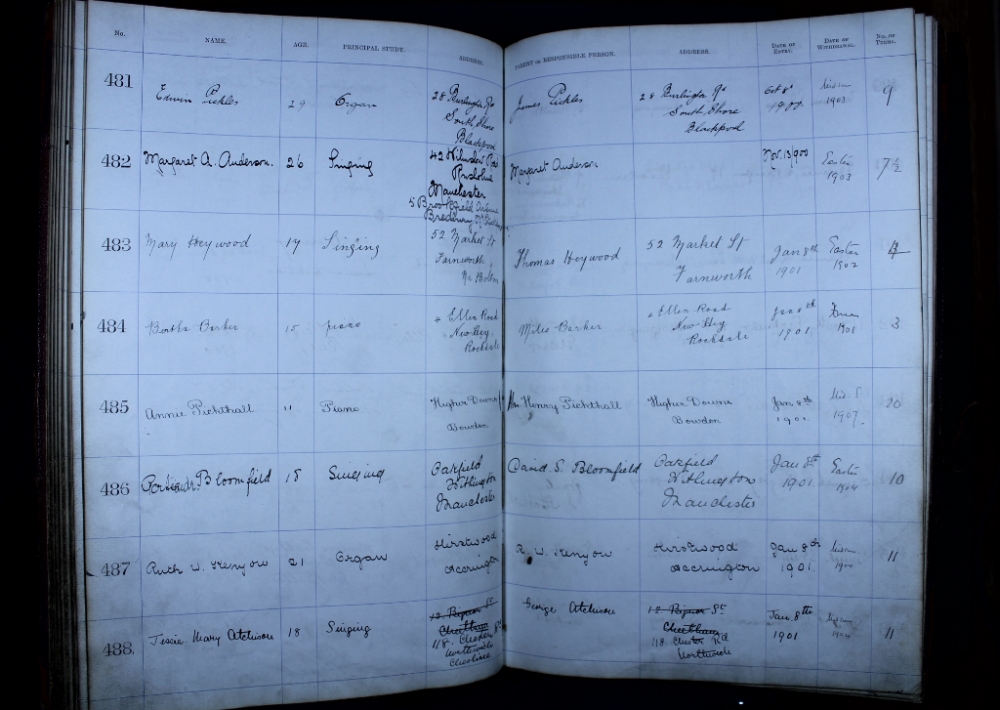 No. NAME. AGE. PRINCIPAL STUDY. ADDRESS. PARENT OR RESPONSIBLE PERSON. ADDRESS. DATE OF ENTRY. DATE OF WITHDRAWAL. NO. OF TERMS.
481 Edwin Pickles 29 Organ 28 Burlington Rd James Pickles 28 Burlington Rd Oct 8th 9
South Shore South Shore 1900 1903
Blackpool Blackpool
482 Margaret A. Anderson. 26 Singing 42 Margaret Anderson Nov. 13/900 Easter 7½
Rusholme 1903
Manchester
5 Brookfield Avenue
Bredbury
483 Mary Heywood 19 Singing 52 Market St Thomas Heywood 52 Market St Jan 8th Easter
Farnworth Farnworth 1901 1902
Nr Bolton
484 Bertha Barker 15 piano Ellen Road Miles Barker Ellen Road Jan 8th 3
New Hey New Hey 1901
Rochdale Rochdale
485 Annie Pickthall 11 Piano Higher Downs Henry Pickthall Higher Downs Jan 8th 20
Bowdon Bowdon 1901. 1907.
486 Bloomfield 18 Singing Oakfield David S. Bloomfield Oakfield Jan 8th Easter 10
Withington Withington 1901 1904
Manchester Manchester
487 Ruth W. Kenyon 21 Organ Hirstwood R. W. Kenyon Hirstwood Jan 8th 11
Accrington Accrington 1901.
488. Jessie Mary Atchison 18 Singing 18 St George Atchison 18 St Jan. 8th 11
Cheetham Cheetham 1901
118. Chester Rd 118 Chester Rd
Northwich Northwich
Cheshire